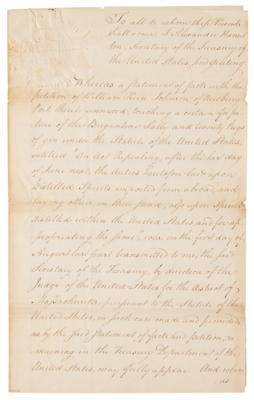 To all to whom these Presents
shall come I Alexander Hamil
ton, Secretary of the Treasury of
the United States, send greeting
Whereas a statement of facts with the
petition of William Johnson, of Newbury
Port there unto annexed, touching a certain forfei
ture of the Brigantine Sally and twenty Kegs
of gin under the Statute of the United States,
entitled "An act Repealing, after the last day
of June next, the duties heretofore laid upon
Distilled Spirits imported from abroad, and
laying others in their stead; also upon Spirits
distilled within the United States, and for ap
propriating the same", was on the first day of
August last past transmitted to me, the said
Secretary of the Treasury, by direction of the
Judge of the United States for the district of
Massachusetts, pursuant to the Statute of the
United States, in such case made and provided,
as by the said statement of facts and petition, re
maining in the Treasury Department of the
United States, may fully appear. And where
as